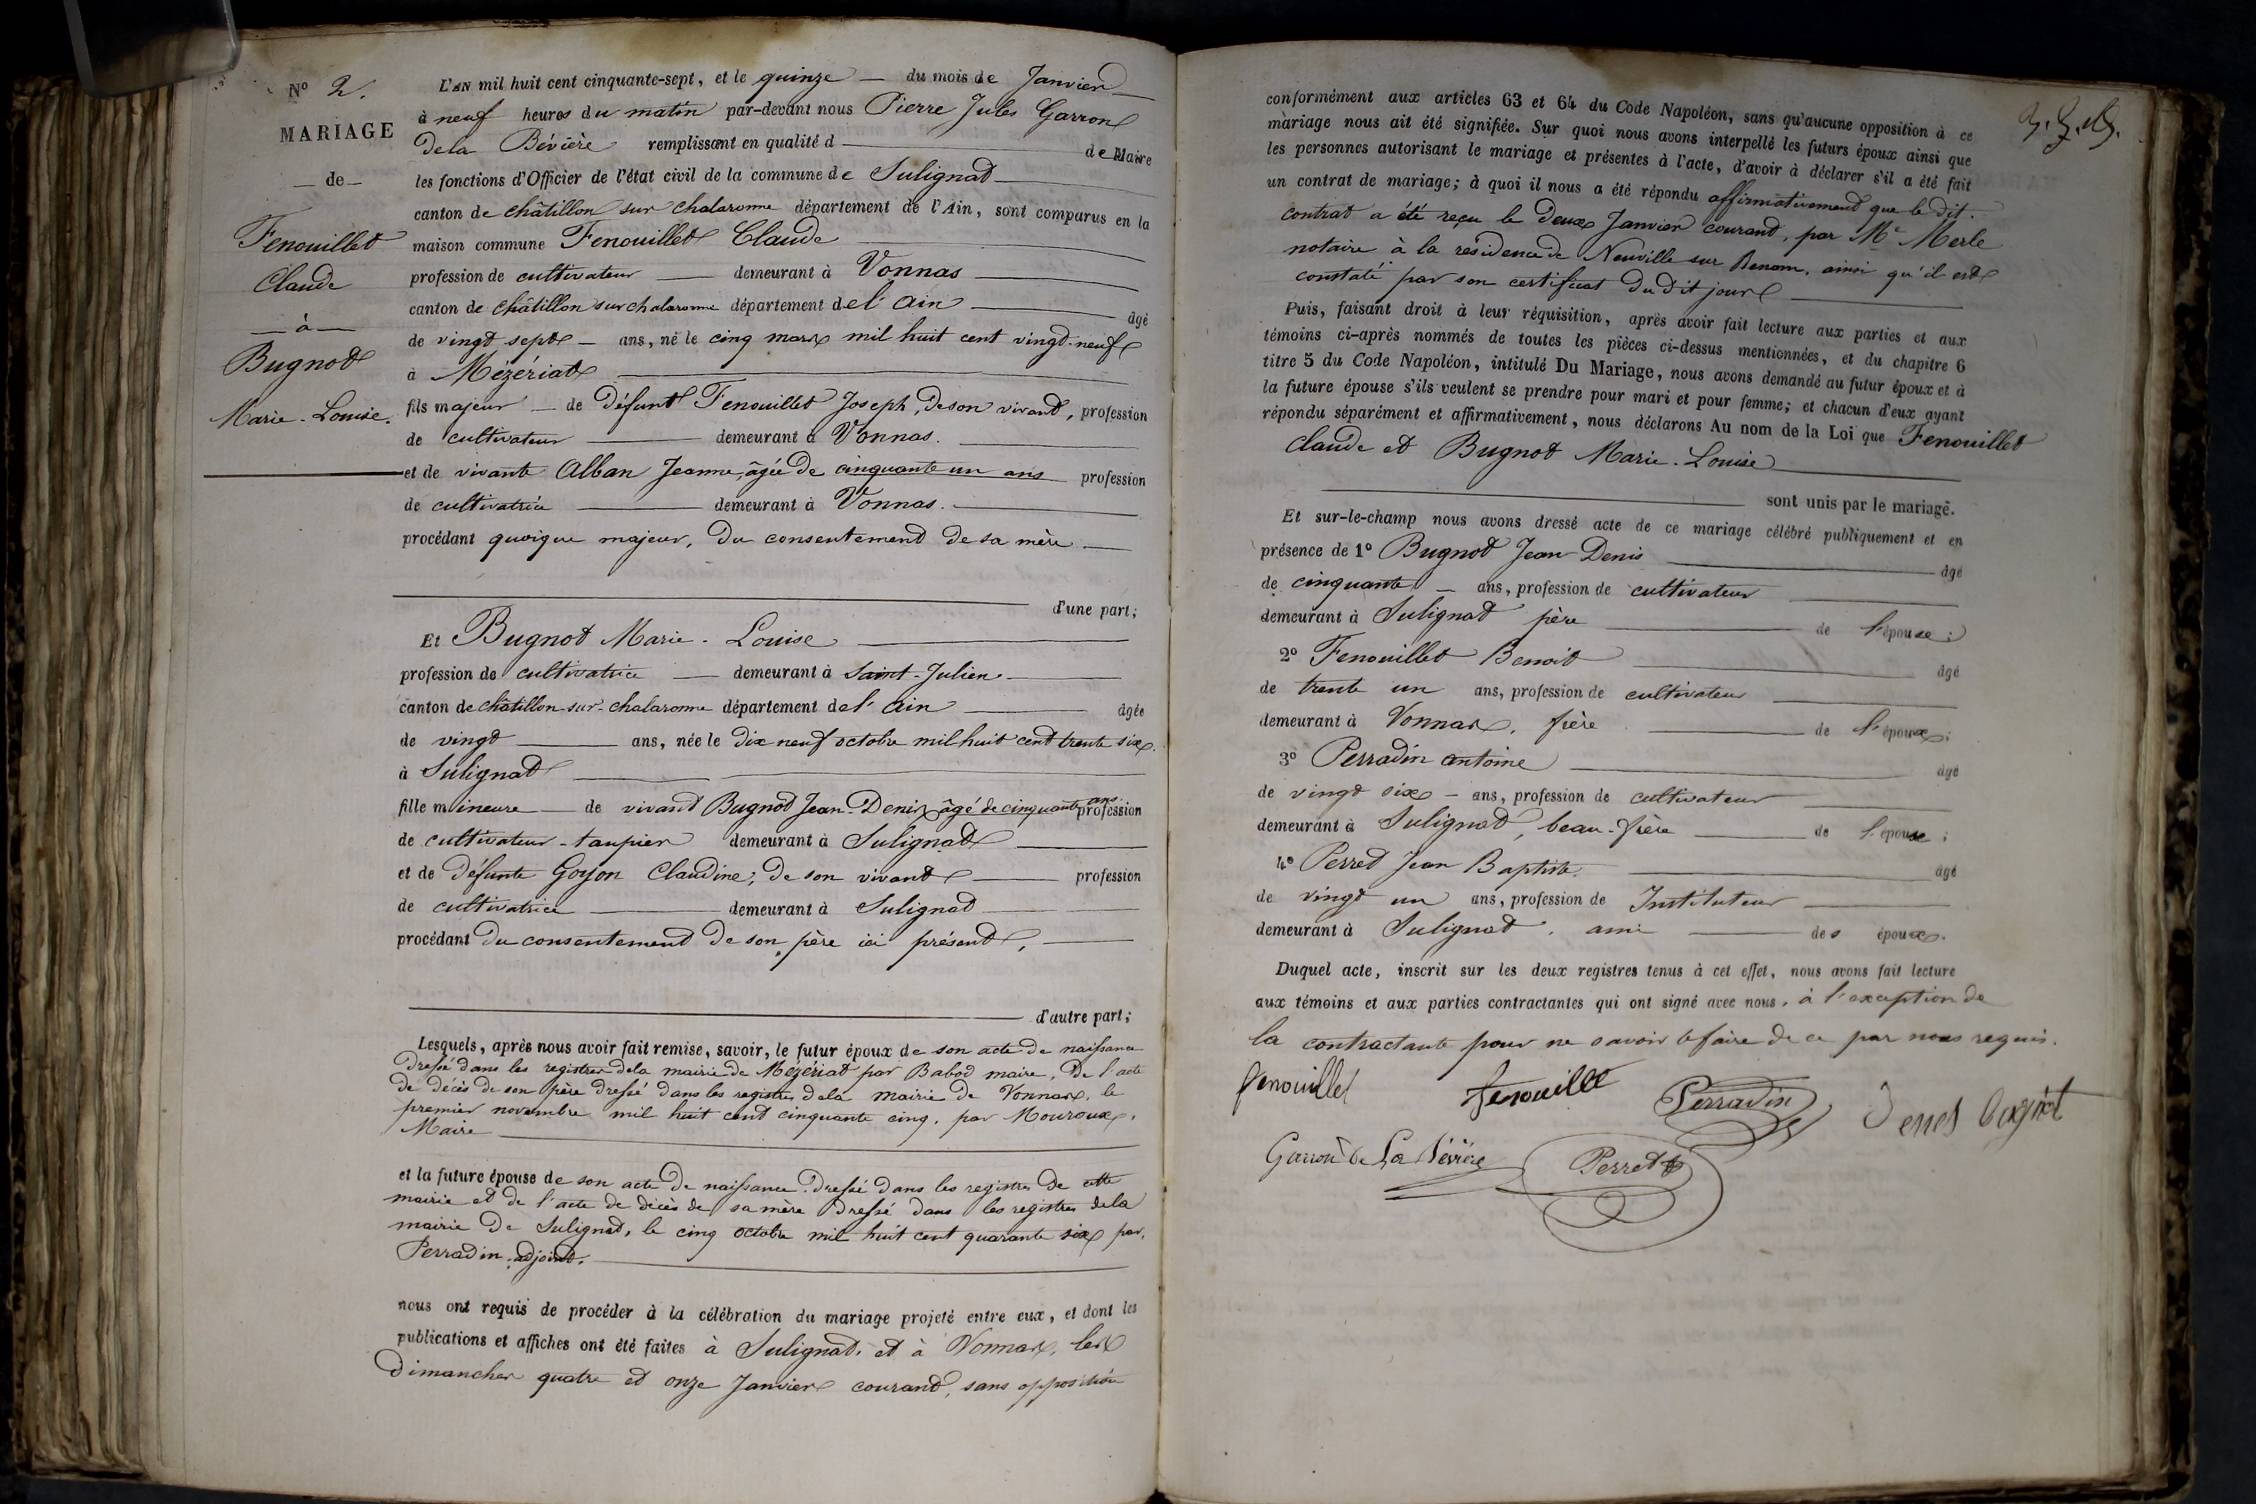 N° 2.
MARIAGE
de
Fenouillet
Claude
à
Bugnot
Marie-Louise.
L'AN mil huit cent cinquante-sept, et le quinze du mois de Janvier
à neuf heures du matin par-devant nous Pierre Jules Garron
de la Bévière remplissant en qualité d de Maire
les fonctions d'Officier de l'état civil de la commune de Sulignat
canton de châtillon sur chalaronne département de l'Ain, sont comparus en la
maison commune Fenouillet Claude
profession de cultivateur demeurant à Vonnas
canton de châtillon sur chalaronne département de l'ain âgé
de vingt sept ans, né le cinq mars mil huit cent vingt-neuf
à Mézériat
fils majeur de défunt Fenouillet Joseph, de son vivant, profession
de cultivateur demeurant à Vonnas.
et de vivante Alban Jeanne, âgée de cinquante un ans profession
de cultivatrice demeurant à Vonnas.
procédant quoique majeur, du consentement de sa mère
d'une part;
Et Bugnot Marie-Louise
profession de cultivatrice demeurant à Saint-Julien
canton de châtillon-sur-chalaronne département de l'ain âgée
de vingt ans, née le dix neuf octobre mil huit cent trente six.
à Sulignat
fille mineure de vivant Bugnot Jean-Denis âgé de cinquante ans profession
de cultivateur-taupier demeurant à Sulignat
et de défunte Goyon Claudine, de son vivant profession
de cultivatrice demeurant à Sulignat
procédant du consentement de son père ici présent,
d'autre part;
Lesquels, après nous avoir fait remise, savoir, le futur époux de son acte de naissance
dressé dans les registres de la mairie de Mézériat par Babod maire, de l'acte
de décès de son père dressé dans les registres de la mairie de Vonnas, le
premier novembre mil huit cent cinquante cinq, par Mouroux,
Maire
et la future épouse de son acte de naissance dressé dans les registres de cette
mairie et de l'acte de décès de sa mère dressé dans les registres de la
mairie de Sulignat, le cinq octobre mil huit cent quarante six par,
Perradin adjoint.
nous ont requis de procéder à la célébration du mariage projeté entre eux, et dont les
publications et affiches ont été faites à Sulignat, et à Vonnas, les
dimanches quatre et onze Janvier courant, sans opposition
conformément aux articles 63 et 64 du Code Napoléon, sans qu'aucune opposition à ce
màriage nous ait été signifiée. Sur quoi nous avons interpellé les futurs époux ainsi que
les personnes autorisant le mariage et présentes à l'acte, d'avoir à déclarer s'il a été fait
un contrat de mariage; à quoi il nous a été répondu affirmativement que le dit
contrat a été reçu le deux Janvier courant, par Me Merle
notaire à la résidence de Neuville sur Renom, ainsi qu'il est
constaté par son certificat du dit jour
Puis, faisant droit à leur réquisition, après avoir fait lecture aux parties et aux
témoins ci-après nommés de toutes les pièces ci-dessus mentionnées, et du chapitre 6
titre 5 du Code Napoléon, intitulé Du Mariage, nous avons demandé au futur époux et à
la future épouse s'ils veulent se prendre pour mari et pour femme; et chacun d'eux ayant
répondu séparément et affirmativement, nous déclarons Au nom de la Loi que Fenouillet
Claude et Bugnot Marie-Louise
sont unis par le mariage.
Et sur-le-champ nous avons dressé acte de ce mariage célébré publiquement et en
présence de 1° Bugnot Jean Denis âgé
de cinquante ans, profession de cultivateur
demeurant à Sulignat père de l'épouse;
2° Fenouillet Benoit âgé
de trente un ans, profession de cultivateur
demeurant à Vonnas, frère de l'époux;
3° Perradin antoine âgé
de vingt six ans, profession de cultivateur
demeurant à Sulignat, beau-frère de l'épouse;
4° Perret Jean Baptiste. âgé
de vingt un ans, profession de Instituteur
demeurant à Sulignat, ami des époux.
Duquel acte, inscrit sur les deux registres tenus à cet effet, nous avons fait lecture
aux témoins et aux parties contractantes qui ont signé avec nous, à l'exception de
la contractante pour ne savoir le faire de ce par nous requis.
fenouillet fenouille Perradin Denes bugnot
Garron de La Bévière Perret